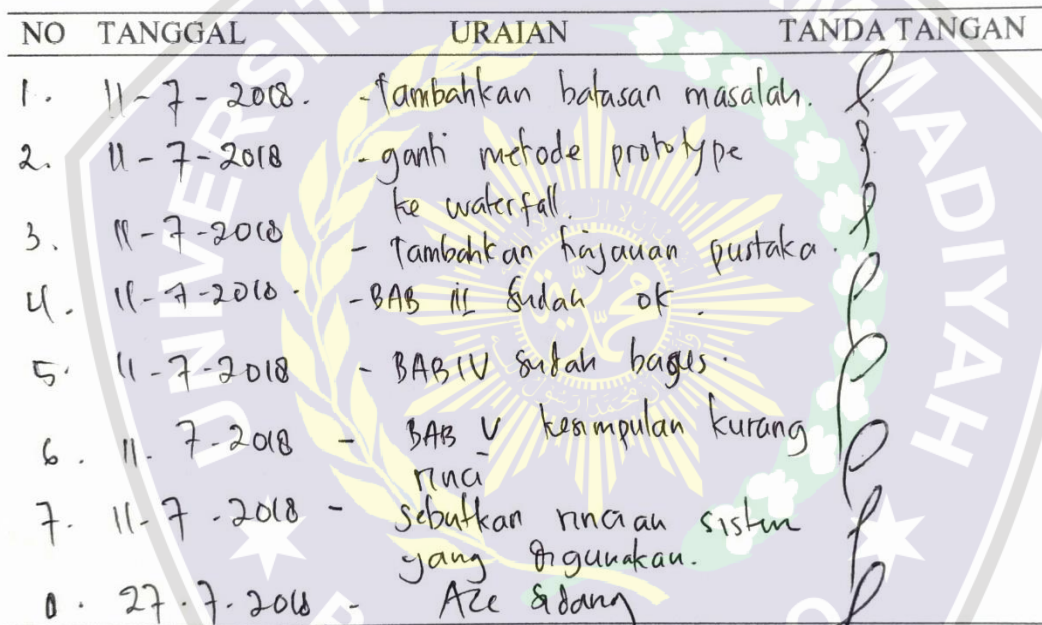 NO TANGGAL URAIAN TANDA TANGAN
1. 11-7-2018. - Tambahkan batasan masalah.
2. 11-7-2018 - ganti metode prototype
ke waterfall.
3. 11-7-2018 - Tambahkan kajauan pustaka.
4. 11-7-2018. - BAB III Sudah ok.
5. 11-7-2018 - BAB IV sudah bagus.
6. 11.7-2018 - BAB V kesimpulan kurang
rinci
7. 11-7-2018 - sebutkan rincian sistem
yang digunakan.
8. 27.7.2018 - Acc Sidang
UNIVERSITA
AMMADIYAH